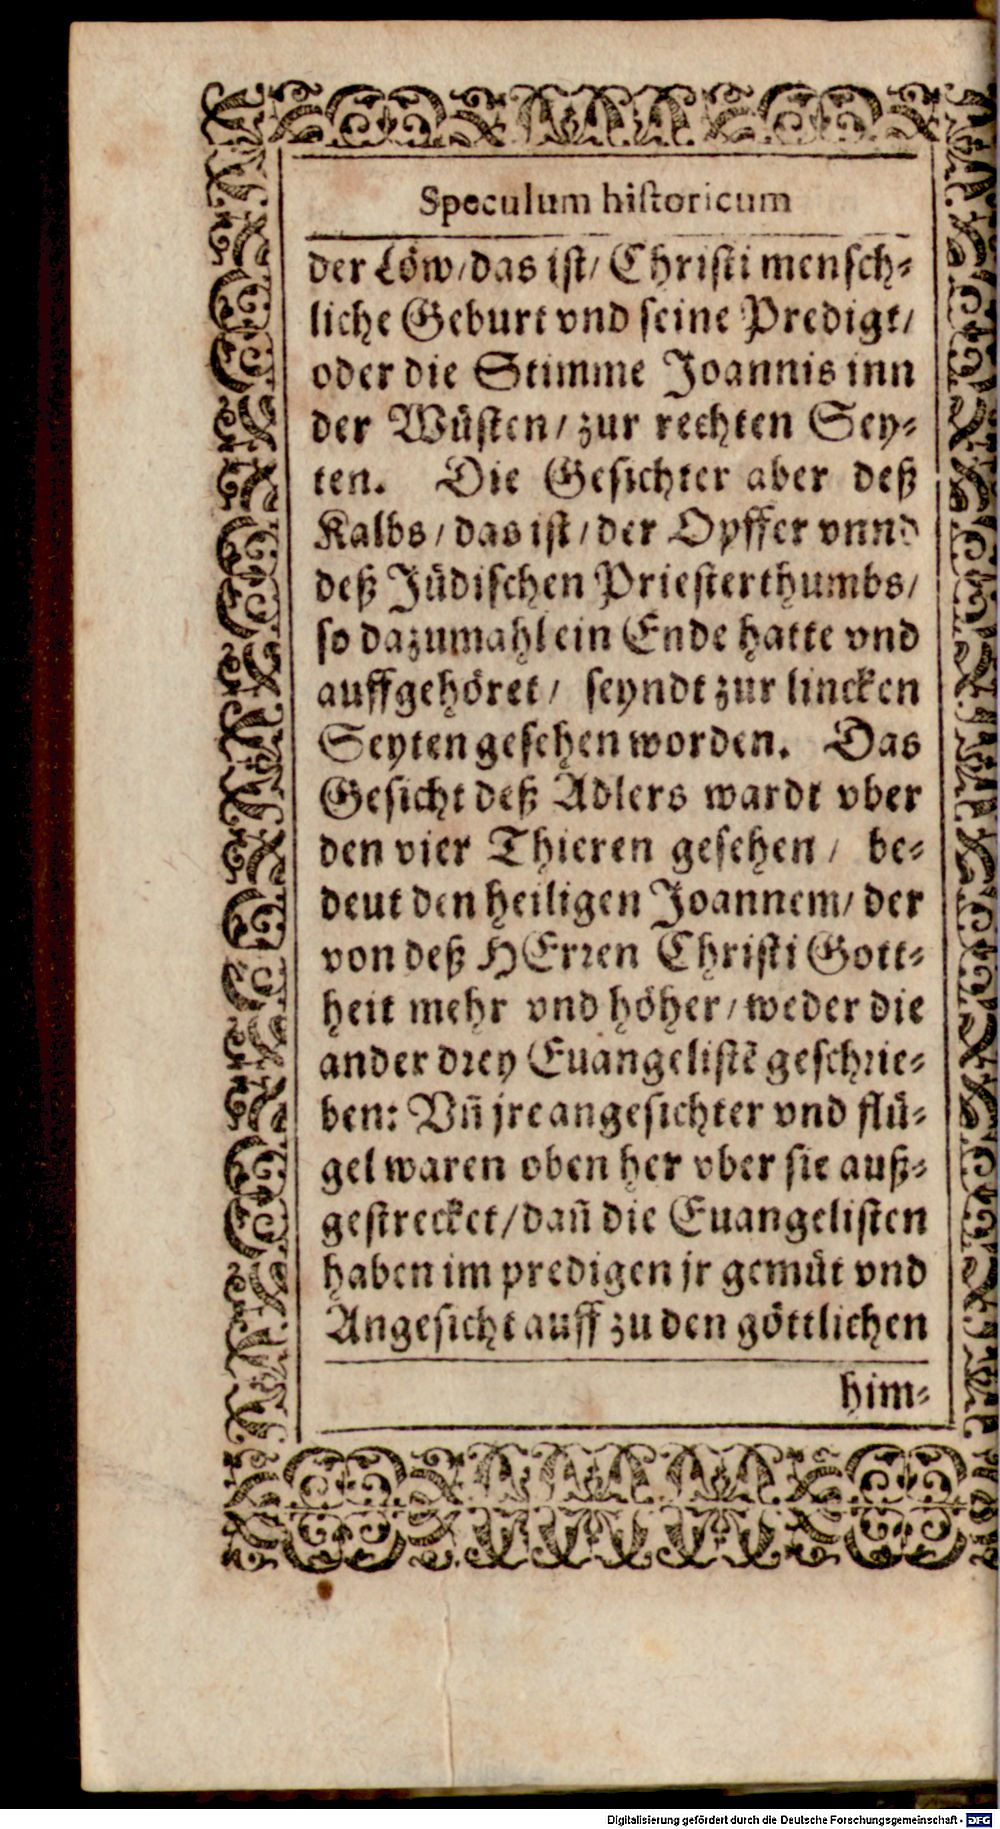 Speculum historicum
der Löw/das ist/ Christi mensch-
liche Geburt vnd seine Predigt/
oder die Stimme Joannis inn
der Wüsten/ zur rechten Sey-
ten. Die Gesichter aber deß
Kalbs/ das ist/ der Opffer vnnd
deß Jüdischen Priesterthumbs/
so dazumahl ein Ende hatte vnd
auffgehöret/ seyndt zur lincken
Seyten gesehen worden. Das
Gesicht deß Adlers wardt vber
den vier Thieren gesehen/ be-
deut den heiligen Joannem/ der
von deß HErren Christi Gott-
heit mehr vnd höher/ weder die
ander drey Euangelistē geschrie-
ben: Vñ jre angesichter vnd flü-
gel waren oben her vber sie auß-
gestrecket/ dañ die Euangelisten
haben im predigen jr gemüt vnd
Angesicht auff zu den göttlichen
him-
Digitalisierung gefördert durch die Deutsche Forschungsgemeinschaft - DFG